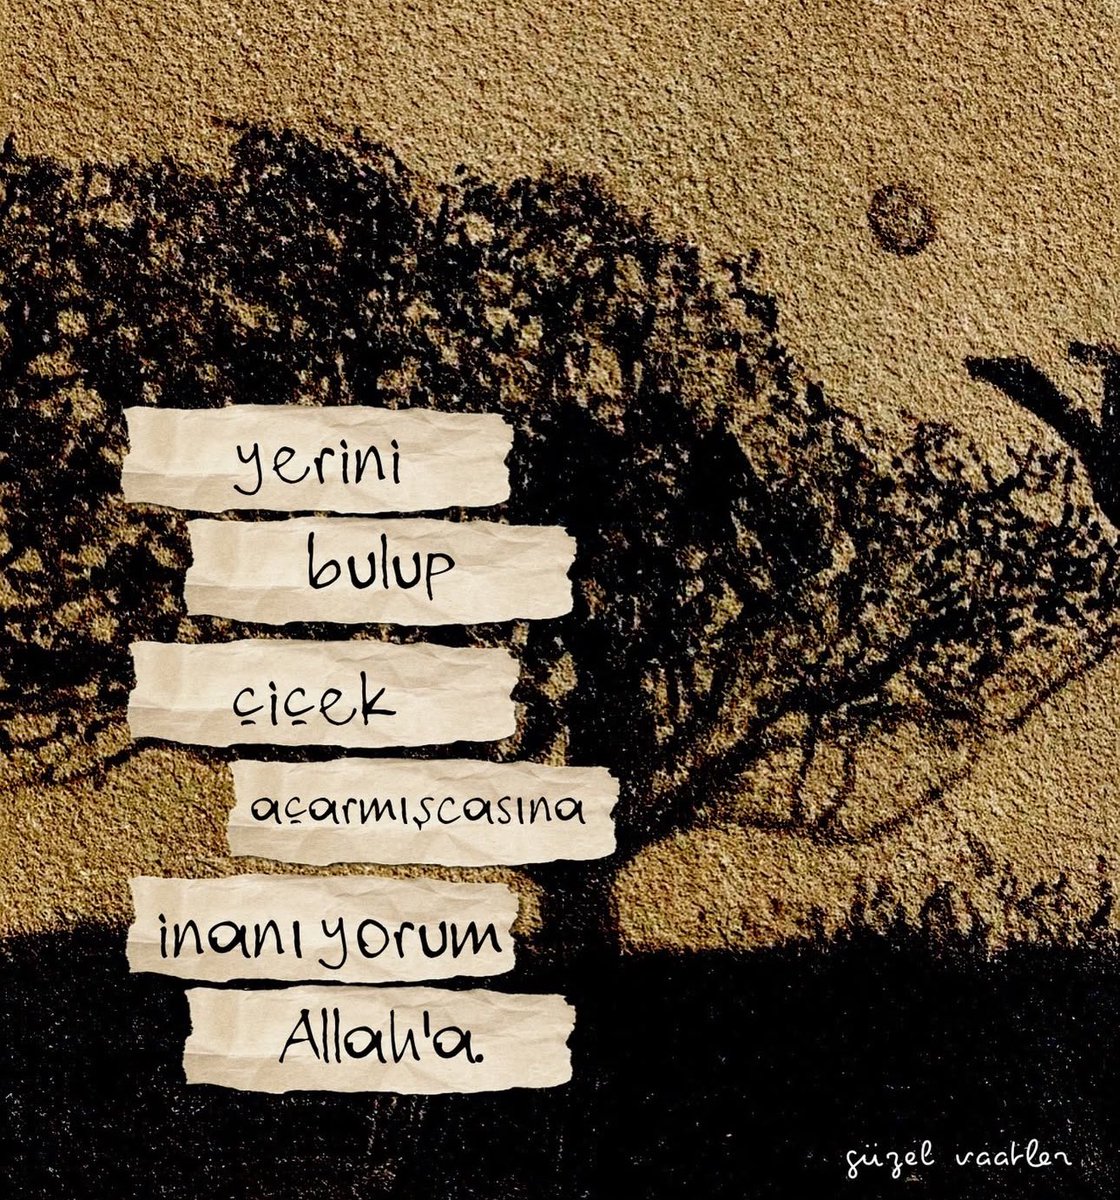 yerini
bulup
çiçek
açarmışcasına
inanıyorum
Allah'a.
güzel vaatler